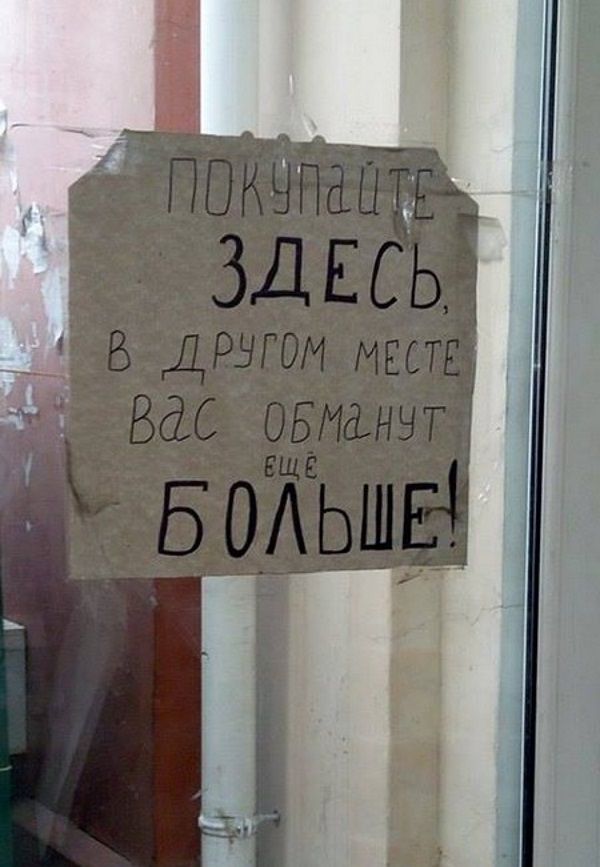 ПОКУПАЙТЕ
ЗДЕСЬ,
В ДРУГОМ МЕСТЕ
ВаС ОБМаНУТ
ЕЩЁ
БОЛЬШЕ!